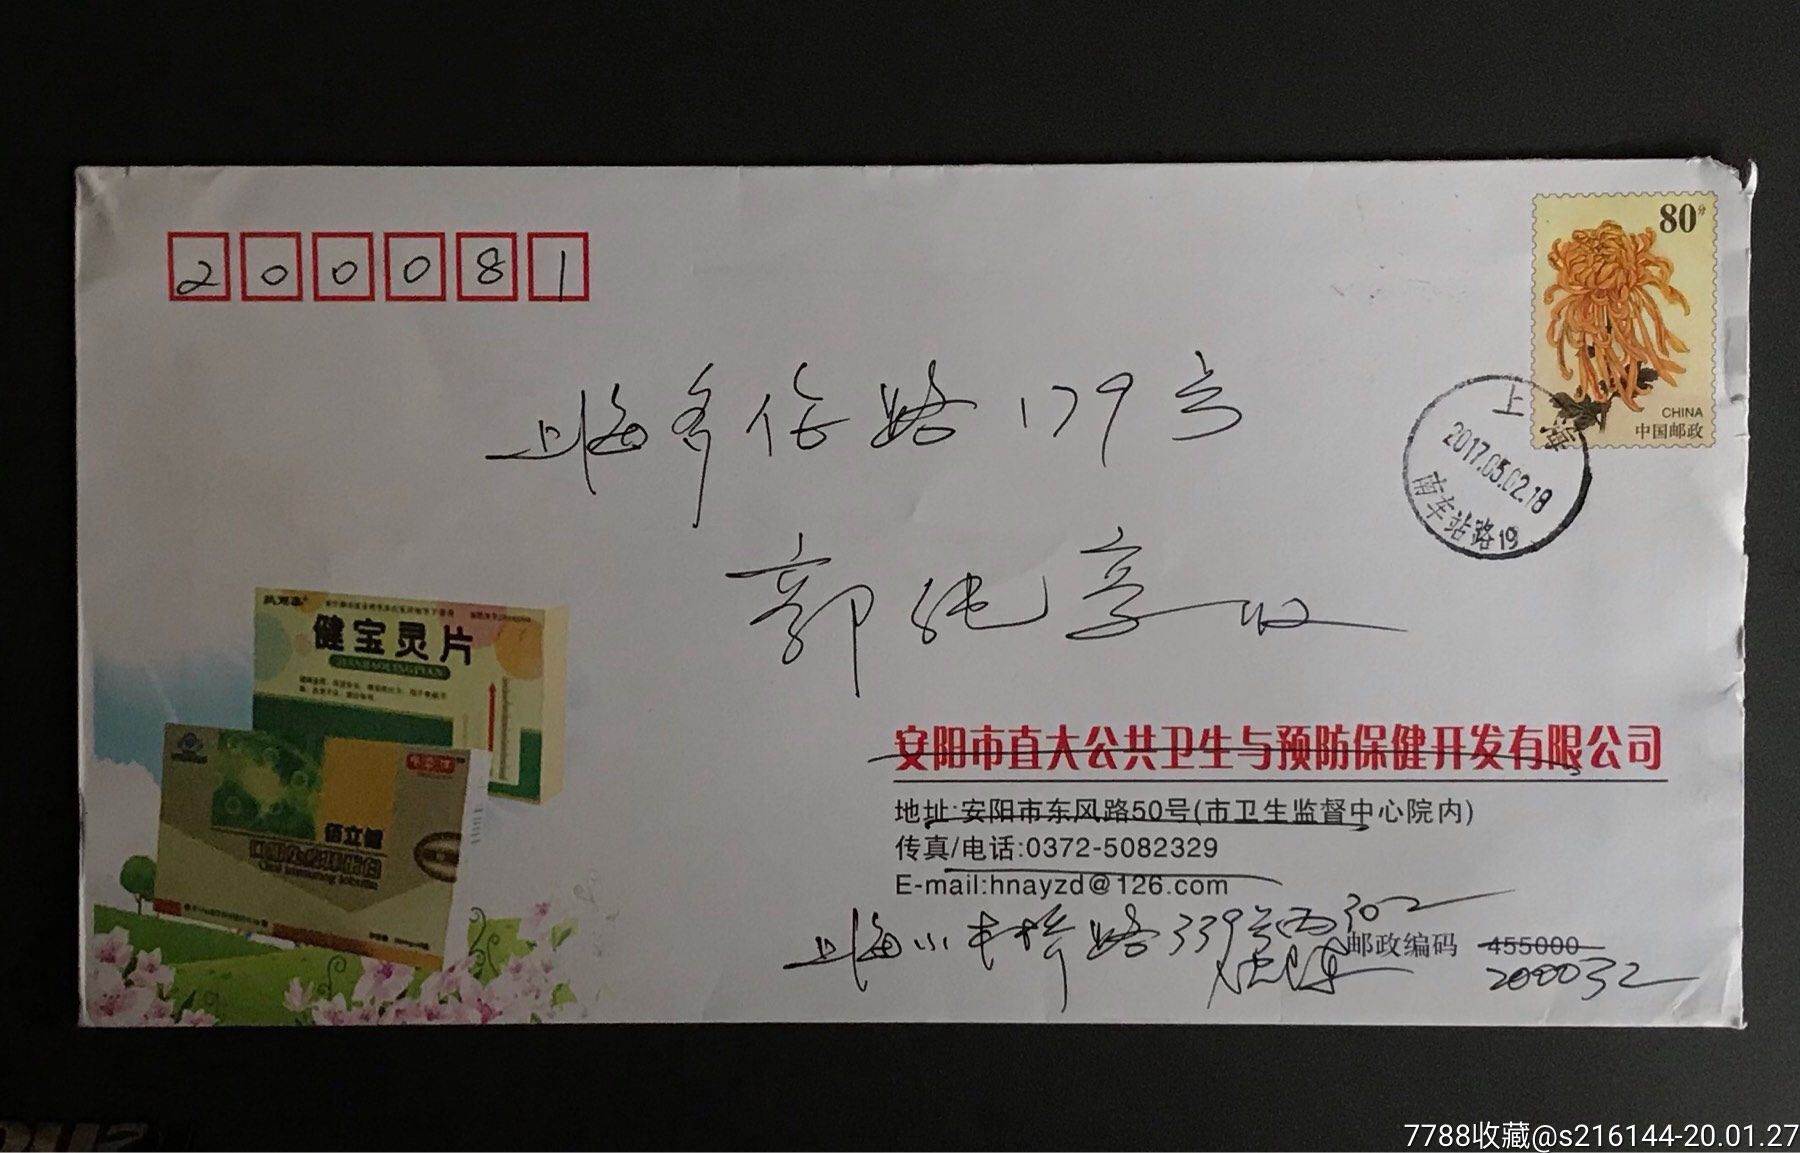 200081
80分
CHINA
中国邮政
上海
2017.05.02.18
南车站路19
上海多伦路179号
郭纯享收
健宝灵片
JIANBAOLINGPIAN
佰立健
安阳市直大公共卫生与预防保健开发有限公司
地址:安阳市东风路50号(市卫生监督中心院内)
传真/电话:0372-5082329
E-mail:hnayzd@126.com
上海小木桥路339号丙302
邮政编码 455000
200032
7788收藏@s216144-20.01.27